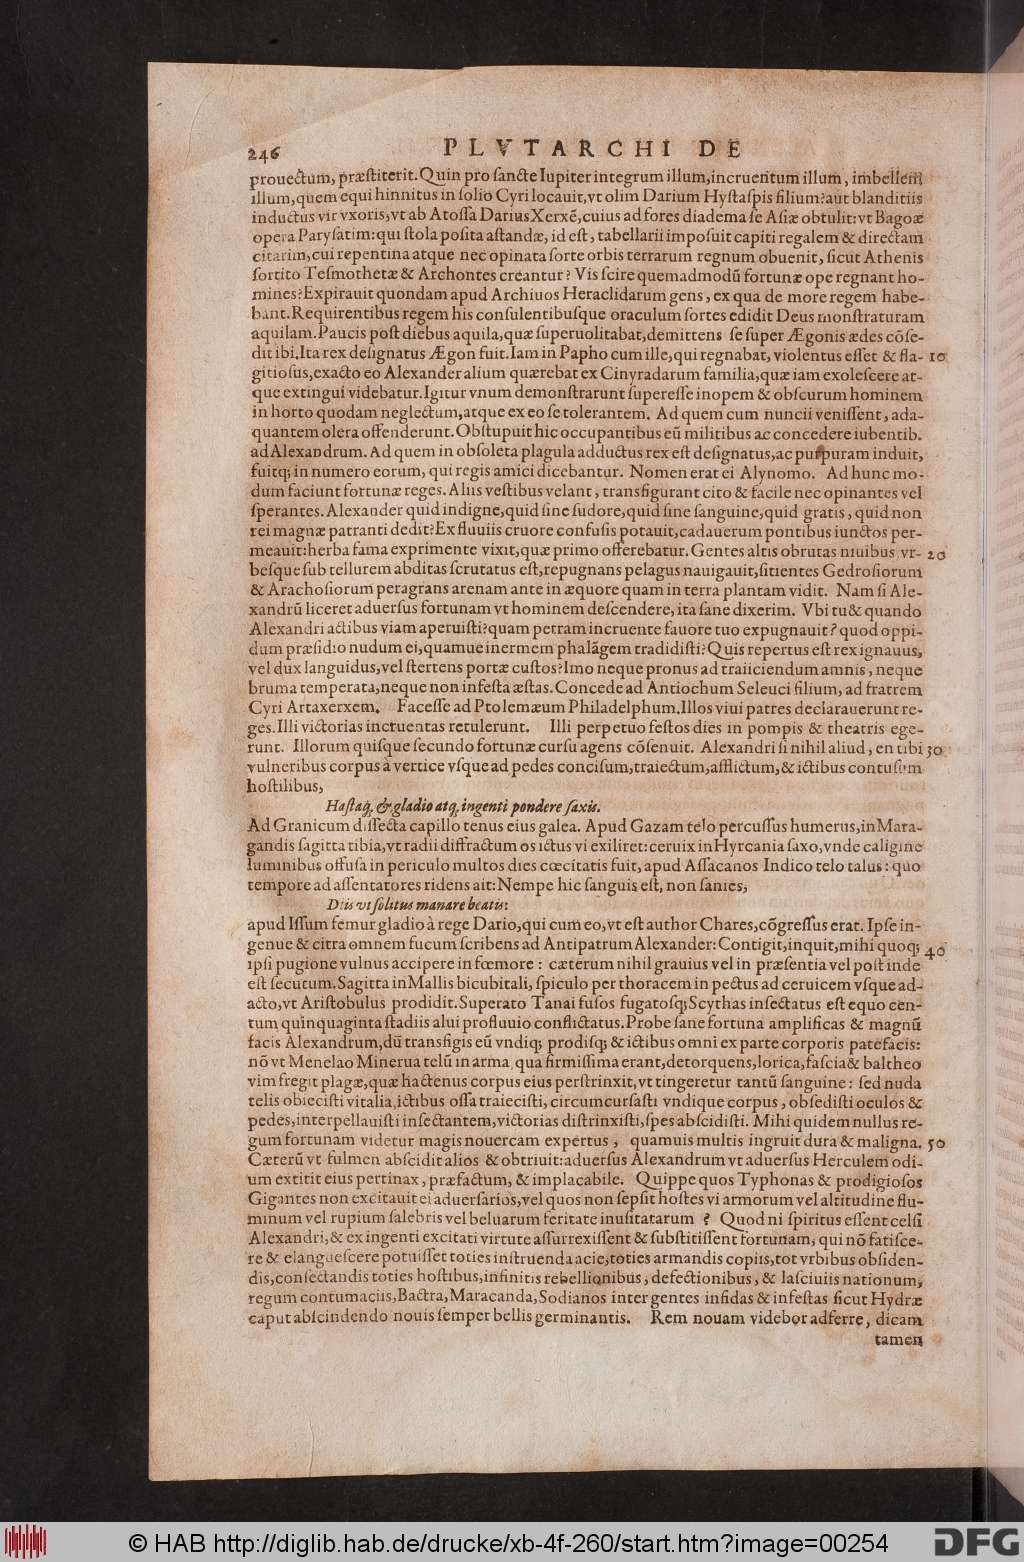 246 PLVTARCHI DE
prouectum, præstiterit. Quin pro sancte Iupiter integrum illum, incruentum illum, imbellem
illum, quem equi hinnitus in solio Cyri locauit, vt olim Darium Hystaspis filium? aut blanditiis
inductus vir vxoris, vt ab Atossa Darius Xerxẽ, cuius ad fores diadema se Asiæ obtulit: vt Bagoæ
opera Parysatim: qui stola posita astandæ, id est, tabellarii imposuit capiti regalem & directam
citarim, cui repentina atque nec opinata sorte orbis terrarum regnum obuenit, sicut Athenis
sortito Tesmothetæ & Archontes creantur? Vis scire quemadmodũ fortunæ ope regnant ho-
mines? Expirauit quondam apud Archiuos Heraclidarum gens, ex qua de more regem habe-
bant. Requirentibus regem his consulentibusque oraculum sortes edidit Deus monstraturam
aquilam. Paucis post diebus aquila, quæ superuolitabat, demittens se super Ægonis ædes cõse-
dit ibi, Ita rex designatus Ægon fuit. Iam in Papho cum ille, qui regnabat, violentus esset & fla- 10
gitiosus, exacto eo Alexander alium quærebat ex Cinyradarum familia, quæ iam exolescere at-
que extingui videbatur. Igitur vnum demonstrarunt superesse inopem & obscurum hominem
in horto quodam neglectum, atque ex eo se tolerantem. Ad quem cum nuncii venissent, ada-
quantem olera offenderunt. Obstupuit hic occupantibus eũ militibus ac concedere iubentib.
ad Alexandrum. Ad quem in obsoleta plagula adductus rex est designatus, ac purpuram induit,
fuitq; in numero eorum, qui regis amici dicebantur. Nomen erat ei Alynomo. Ad hunc mo-
dum faciunt fortunæ reges. Aliis vestibus velant, transfigurant cito & facile nec opinantes vel
sperantes. Alexander quid indigne, quid sine sudore, quid sine sanguine, quid gratis, quid non
rei magnæ patranti dedit? Ex fluuiis cruore confusis potauit, cadauerum pontibus iunctos per-
meauit: herba fama exprimente vixit, quæ primo offerebatur. Gentes altis obrutas niuibus vr- 20
besque sub tellurem abditas scrutatus est, repugnans pelagus nauigauit, sitientes Gedrosiorum
& Arachosiorum peragrans arenam ante in æquore quam in terra plantam vidit. Nam si Ale-
xandrũ liceret aduersus fortunam vt hominem descendere, ita sane dixerim. Vbi tu & quando
Alexandri actibus viam aperuisti? quam petram incruente fauore tuo expugnauit? quod oppi-
dum præsidio nudum ei, quamue inermem phalãgem tradidisti? Quis repertus est rex ignauus,
vel dux languidus, vel stertens portæ custos? Imo neque pronus ad traiiciendum amnis, neque
bruma temperata, neque non infesta æstas. Concede ad Antiochum Seleuci filium, ad fratrem
Cyri Artaxerxem. Facesse ad Ptolemæum Philadelphum. Illos viui patres declarauerunt re-
ges. Illi victorias incruentas retulerunt. Illi perpetuo festos dies in pompis & theatris ege-
runt. Illorum quisque secundo fortunæ cursu agens cõsenuit. Alexandri si nihil aliud, en tibi 30
vulneribus corpus à vertice vsque ad pedes concisum, traiectum, afflictum, & ictibus contusum
hostilibus,
Hastaq; & gladio atq; ingenti pondere saxis.
Ad Granicum dissecta capillo tenus eius galea. Apud Gazam telo percussus humerus, in Mara-
gandis sagitta tibia, vt radii diffractum os ictus vi exiliret: ceruix in Hyrcania saxo, vnde caligine
luminibus offusa in periculo multos dies cœcitatis fuit, apud Assacanos Indico telo talus: quo
tempore ad assentatores ridens ait: Nempe hic sanguis est, non sanies,
Diis vt solitus manare beatis:
apud Issum femur gladio à rege Dario, qui cum eo, vt est author Chares, cõgressus erat. Ipse in-
genue & citra omnem fucum scribens ad Antipatrum Alexander: Contigit, inquit, mihi quoq; 40
ipsi pugione vulnus accipere in fœmore: cæterum nihil grauius vel in præsentia vel post inde
est secutum. Sagitta in Mallis bicubitali, spiculo per thoracem in pectus ad ceruicem vsque ad-
acto, vt Aristobulus prodidit. Superato Tanai fusos fugatosq; Scythas insectatus est equo cen-
tum quinquaginta stadiis alui profluuio conflictatus. Probe sane fortuna amplificas & magnũ
facis Alexandrum, dũ transfigis eũ vndiq; prodisq; & ictibus omni ex parte corporis patefacis:
nõ vt Menelao Minerua telũ in arma, qua firmissima erant, detorquens, lorica, fascia & baltheo
vim fregit plagæ, quæ hactenus corpus eius perstrinxit, vt tingeretur tantũ sanguine: sed nuda
telis obiecisti vitalia, ictibus ossa traiecisti, circumcursasti vndique corpus, obsedisti oculos &
pedes, interpellauisti insectantem, victorias distrinxisti, spes abscidisti. Mihi quidem nullus re-
gum fortunam videtur magis nouercam expertus, quamuis multis ingruit dura & maligna. 50
Cæterũ vt fulmen abscidit alios & obtriuit: aduersus Alexandrum vt aduersus Herculem odi-
um extitit eius pertinax, præfactum, & implacabile. Quippe quos Typhonas & prodigiosos
Gigantes non excitauit ei aduersarios, vel quos non sepsit hostes vi armorum vel altitudine flu-
minum vel rupium salebris vel beluarum feritate inusitatarum? Quod ni spiritus essent celsi
Alexandri, & ex ingenti excitati virtute assurrexissent & substitissent fortunam, qui nõ fatisce-
re & elanguescere potuisset toties instruenda acie, toties armandis copiis, tot vrbibus obsiden-
dis, consectandis toties hostibus, infinitis rebellionibus, defectionibus, & lasciuiis nationum,
regum contumaciis, Bactra, Maracanda, Sodianos inter gentes infidas & infestas sicut Hydræ
caput abscindendo nouis semper bellis germinantis. Rem nouam videbor adferre, dicam
tamen
© HAB http://diglib.hab.de/drucke/xb-4f-260/start.htm?image=00254
DFG